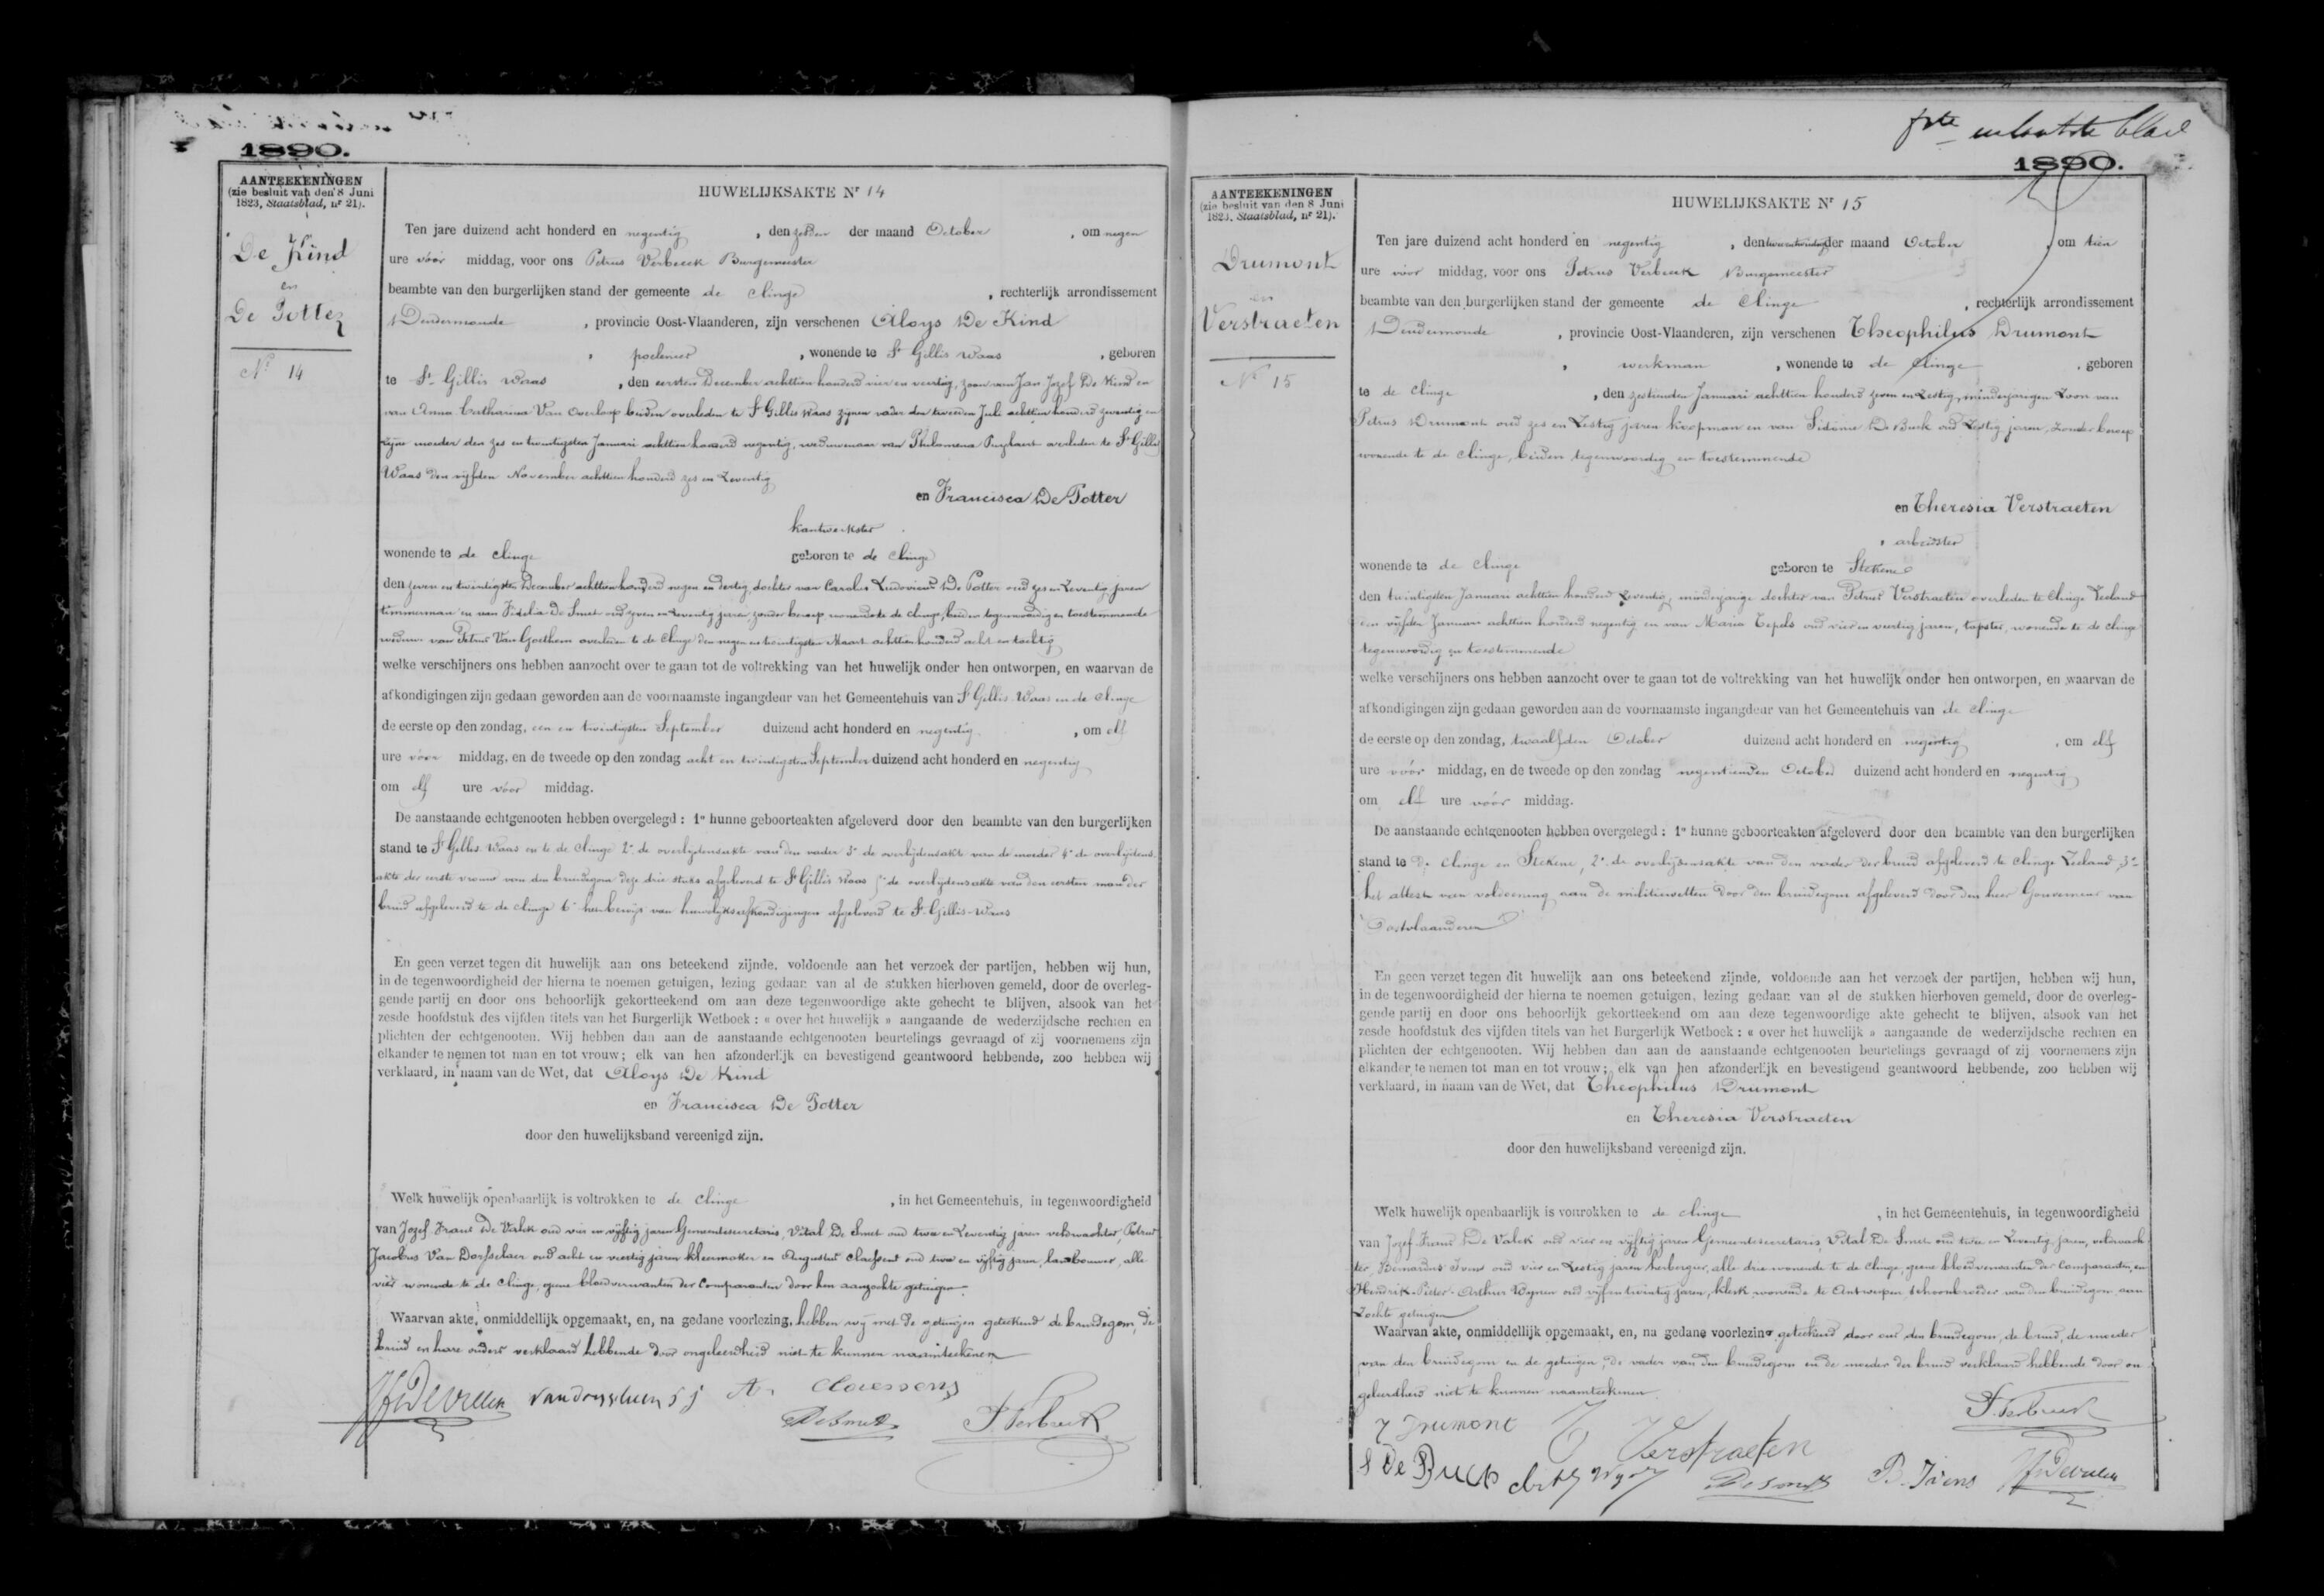 1890.
AANTEEKENINGEN
(zie besluit van den 8 Juni
1823, Staatsblad, nr 21).
De Kind
en
De Potter
Nr 14
HUWELIJKSAKTE Nr 14
Ten jare duizend acht honderd en negentig , den zesden der maand October , om negen
ure vóór middag, voor ons Petrus Verbeeck Burgemeester
beambte van den burgerlijken stand der gemeente de Clinge , rechterlijk arrondissement
Dendermonde , provincie Oost-Vlaanderen, zijn verschenen Aloys De Kind
, poelenier , wonende te St Gillis Waas , geboren
te St Gillis Waas , den eersten December achttien honderd vier en veertig, zoon van Jan Jozef De Kind en
van Anna Catharina Van Overloop beiden overleden te St Gillis Waas zijnen vader den tweeden Juli achttien honderd zeventig en
zijne moeder den zes en twintigsten Januari achttien honderd negentig, weduwnaar van Philomena overleden te St Gillis
Waas den vijfden November achttien honderd zes en zeventig
en Francisca De Potter
kantwerkster
wonende te de Clinge geboren te de Clinge
den zeven en twintigsten December achttien honderd negen en dertig, dochter van Carolus Ludovicus De Potter oud zes en zeventig jaren
timmerman en van Fidelia De Smet oud zeven en zeventig jaren zonder beroep wonende te de Clinge, beiden tegenwoordig en toestemmende
weduwe van Petrus Van Goethem overleden te de Clinge den negen en twintigsten Maart achttien honderd acht en tachtig
welke verschijners ons hebben aanzocht over te gaan tot de voltrekking van het huwelijk onder hen ontworpen, en waarvan de
afkondigingen zijn gedaan geworden aan de voornaamste ingangdeur van het Gemeentehuis van St Gillis-Waas en de Clinge
de eerste op den zondag, een en twintigsten September duizend acht honderd en negentig , om elf
ure vóór middag, en de tweede op den zondag acht en twintigsten September duizend acht honderd en negentig
om elf ure vóór middag.
De aanstaande echtgenooten hebben overgelegd : 1° hunne geboorteakten afgeleverd door den beambte van den burgerlijken
stand te St Gillis-Waas en te de Clinge 2° de overlijdensakte van den vader 3° de overlijdensakte van de moeder 4° de overlijdens-
akte der eerste vrouw van den bruidegom deze drie stuks afgeleverd te St Gillis Waas 5° de overlijdensakte van den eersten man der
bruid afgeleverd te de Clinge 6° het bewijs van huwelijksafkondigingen afgeleverd te St Gillis-Waas
En geen verzet tegen dit huwelijk aan ons beteekend zijnde, voldoende aan het verzoek der partijen, hebben wij hun,
in de tegenwoordigheid der hierna te noemen getuigen, lezing gedaan van al de stukken hierboven gemeld, door de overleg-
gende partij en door ons behoorlijk gekortteekend om aan deze tegenwoordige akte gehecht te blijven, alsook van het
zesde hoofdstuk des vijfden titels van het Burgerlijk Wetboek : « over het huwelijk » aangaande de wederzijdsche rechten en
plichten der echtgenooten. Wij hebben dan aan de aanstaande echtgenooten beurtelings gevraagd of zij voornemens zijn
elkander te nemen tot man en tot vrouw; elk van hen afzonderlijk en bevestigend geantwoord hebbende, zoo hebben wij
verklaard, in naam van de Wet, dat Aloys De Kind
en Francisca De Potter
door den huwelijksband vereenigd zijn.
Welk huwelijk openbaarlijk is voltrokken te de Clinge , in het Gemeentehuis, in tegenwoordigheid
van Jozef Frans De Valck oud vier en vijftig jaren Gemeentesecretaris, Vital De Smet oud twee en zeventig jaren veldwachter, Petrus
Jacobus Van Dorsselaer oud acht en veertig jaren kleermaker en Augustus Claessens oud twee en vijftig jaren, landbouwer, alle
vier wonende te de Clinge, geene bloedverwanten der Comparanten door hen aangezochte getuigen.
Waarvan akte, onmiddellijk opgemaakt, en, na gedane voorlezing, hebben wij met de getuigen geteekend de bruidegom, de
bruid en hare ouders verklaard hebbende door ongeleerdheid niet te kunnen naamteekenen
Claessens
DeSmet P. Verbeeck
fste en laatste blad
1890.
AANTEEKENINGEN
(zie besluit van den 8 Juni
1823, Staatsblad, nr 21).
Drumont
en
Verstraeten
Nr 15
HUWELIJKSAKTE Nr 15
Ten jare duizend acht honderd en negentig , den der maand October , om tien
ure vóór middag, voor ons Petrus Verbeeck Burgemeester
beambte van den burgerlijken stand der gemeente de Clinge , rechterlijk arrondissement
Dendermonde , provincie Oost-Vlaanderen, zijn verschenen Theophilus Drumont
, werkman , wonende te de Clinge , geboren
te de Clinge , den zestienden Januari achttien honderd zeven en zestig, minderjarigen zoon van
Petrus Drumont oud zes en zestig jaren koopman en van Sidonie De Buck oud zestig jaren, zonder beroep
wonende te de Clinge, beiden tegenwoordig en toestemmende
en Theresia Verstraeten
, arbeidster
wonende te de Clinge geboren te Stekene
den twintigsten Januari achttien honderd zeventig, minderjarige dochter van Petrus Verstraeten overleden te Clinge Zeeland
den vijfden Januari achttien honderd negentig en van Maria Tepels oud vier en veertig jaren, tapster, wonende te de Clinge
tegenwoordig en toestemmende
welke verschijners ons hebben aanzocht over te gaan tot de voltrekking van het huwelijk onder hen ontworpen, en waarvan de
afkondigingen zijn gedaan geworden aan de voornaamste ingangdeur van het Gemeentehuis van de Clinge
de eerste op den zondag, twaalfden October duizend acht honderd en negentig , om elf
ure vóór middag, en de tweede op den zondag negentienden October duizend acht honderd en negentig
om elf ure vóór middag.
De aanstaande echtgenooten hebben overgelegd : 1° hunne geboorteakten afgeleverd door den beambte van den burgerlijken
stand te de Clinge en Stekene, 2° de overlijdensakte van den vader der bruid afgeleverd te Clinge Zeeland, 3°
het attest van voldoening aan de militiewetten door den bruidegom afgeleverd door den heer Gouverneur van
Oostvlaanderen
En geen verzet tegen dit huwelijk aan ons beteekend zijnde, voldoende aan het verzoek der partijen, hebben wij hun,
in de tegenwoordigheid der hierna te noemen getuigen, lezing gedaan van al de stukken hierboven gemeld, door de overleg-
gende partij en door ons behoorlijk gekortteekend om aan deze tegenwoordige akte gehecht te blijven, alsook van het
zesde hoofdstuk des vijfden titels van het Burgerlijk Wetboek : « over het huwelijk » aangaande de wederzijdsche rechten en
plichten der echtgenooten. Wij hebben dan aan de aanstaande echtgenooten beurtelings gevraagd of zij voornemens zijn
elkander te nemen tot man en tot vrouw; elk van hen afzonderlijk en bevestigend geantwoord hebbende, zoo hebben wij
verklaard, in naam van de Wet, dat Theophilus Drumont
en Theresia Verstraeten
door den huwelijksband vereenigd zijn.
Welk huwelijk openbaarlijk is voltrokken te de Clinge , in het Gemeentehuis, in tegenwoordigheid
van Jozef Frans De Valck oud vier en vijftig jaren Gemeentesecretaris, Vital De Smet oud twee en zeventig jaren, veldwach-
ter, Bernardus Ivens oud vier en zestig jaren herbergier, alle drie wonende te de Clinge, geene bloedverwanten der Comparanten, en
Hendrik-Pieter-Arthur oud vijfentwintig jaren, klerk wonende te Antwerpen, schoonbroeder van den bruidegom aan
zochte getuigen
Waarvan akte, onmiddellijk opgemaakt, en, na gedane voorlezing geteekend door ons den bruidegom, de bruid, de moeder
van den bruidegom en de getuigen, de vader van den bruidegom en de moeder der bruid verklaard hebbende door on-
geleerdheid niet te kunnen naamteekenen
P. Verbeeck
T Drumont T Verstraeten
S De Buck DeSmet B. Ivens